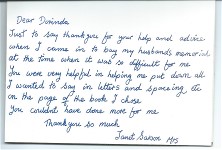 Dear Dorinda
Just to say thankyou for your help and advice
when I came in to buy my husbands memorial
at the time when it was so difficult for me
You were very helpful in helping me put down all
I wanted to say in letters and spacing etc
on the page of the book I chose
You couldn't have done more for me
Thankyou so much
Janet Mrs